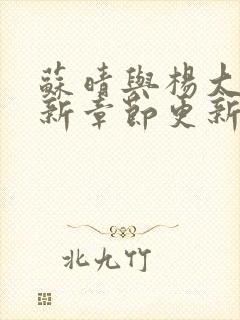 蘇晴與楊太
新章節更新
北九竹